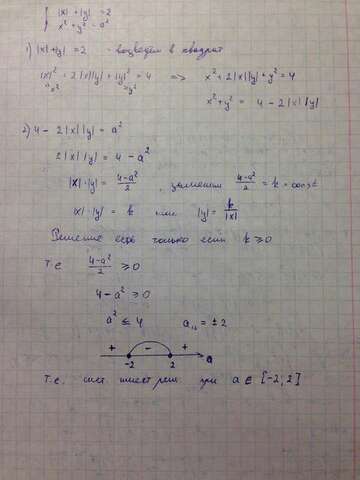 { |x| + |y| = 2
x² + y² = a²
1) |x|+|y| = 2 - возведём в квадрат
|x|² + 2|x||y| + |y|² = 4 => x² + 2|x||y| + y² = 4
"x² "y²
x² + y² = 4 - 2|x||y|
2) 4 - 2|x||y| = a²
2|x||y| = 4 - a²
|x|·|y| = (4-a²)/2, заменим (4-a²)/2 = k - const
|x|·|y| = k или |y| = k/|x|
Решение есть только если k ≥ 0
т.е (4-a²)/2 ≥ 0
4 - a² ≥ 0
a² ≤ 4 a₁,₂ = ± 2
+ - +
-2 2 a
т.е. сист. имеет реш. при a ∈ [-2; 2]